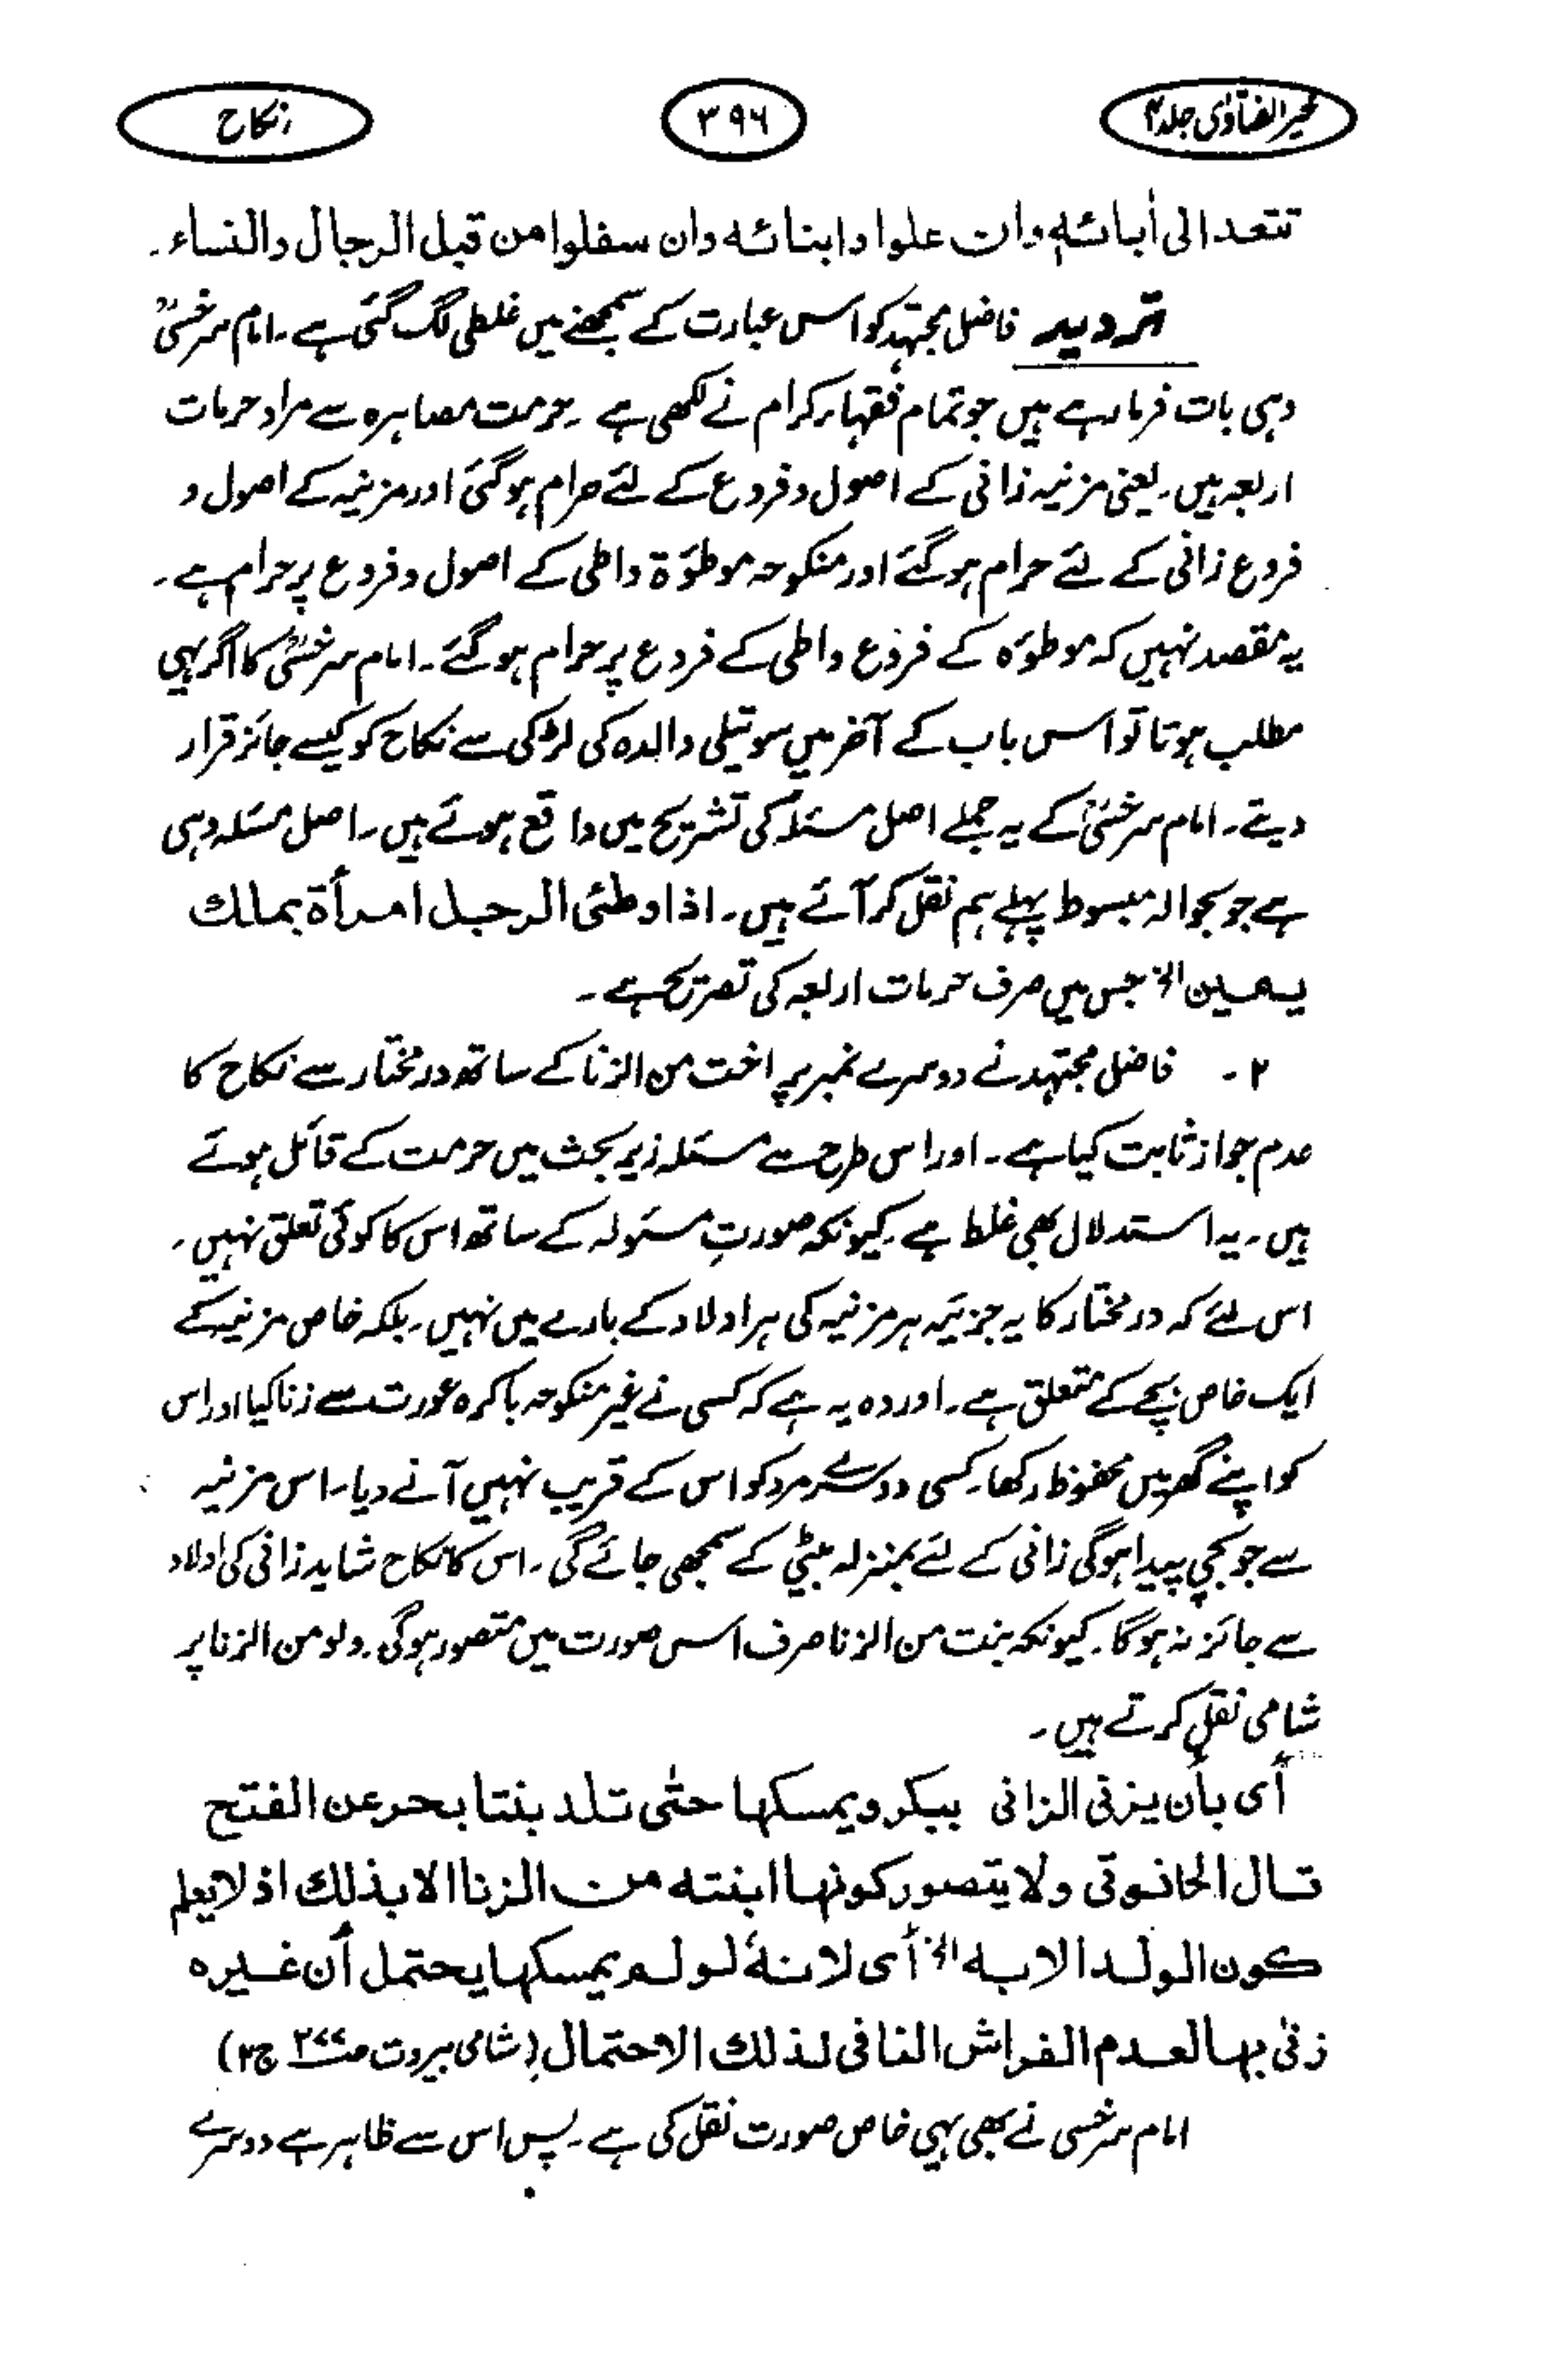 خیر الفتاوٰی جلد ۴
۳۹۶
نکاح
تتعد الی أبائہ وان علوا وابنائه وان سفلوا من قبل الرجال والنساء۔
تردید فاضل مجتہد کو اس عبارت کے سمجھنے میں غلطی لگ گئی ہے ۔ امام سرخسیؒ
وہی بات فرما رہے ہیں جو تمام فقہاء کرام نے لکھی ہے ۔ حرمت مصاہرہ سے مراد حرمات
اربعہ ہیں ۔ یعنی مزنیہ زانی کے اصول و فروع کے لئے حرام ہو گئی اور مزنیہ کے اصول و
فروع زانی کے لئے حرام ہو گئے اور منکوحہ موطؤۃ واطی کے اصول و فروع پر حرام ہے ۔
یہ مقصد نہیں کہ موطوٴہ کے فروع واطی کے فروع پر حرام ہو گئے ۔ امام سرخسیؒ کا اگر یہی
مطلب ہوتا تو اس باب کے آخر میں سوتیلی والدہ کی لڑکی سے نکاح کو کیسے جائز قرار
دیتے ۔ امام سرخسیؒ کے یہ جملے اصل مسئلہ کی تشریح میں واقع ہوئے ہیں ۔ اصل مسئلہ وہی
ہے جو بحوالہ مبسوط پہلے ہم نقل کر آئے ہیں ۔ اذا وطئی الرجل امرأة بملك
یمین الخ جس میں صرف حرمات اربعہ کی تصریح ہے ۔
۲ ۔ فاضل مجتہد نے دوسرے نمبر پر اخت من الزنا کے ساتھ در مختار سے نکاح کا
عدم جواز ثابت کیا ہے ۔ اور اس طرح سے مسئلہ زیر بحث میں حرمت کے قائل ہوئے
ہیں ۔ یہ استدلال بھی غلط ہے ۔ کیونکہ صورتِ مسئولہ کے ساتھ اس کا کوئی تعلق نہیں ۔
اس لئے کہ در مختار کا یہ جزئیہ ہر مزنیہ کی ہر اولاد کے بارے میں نہیں ۔ بلکہ خاص مزنیہ کے
ایک خاص بچے کے متعلق ہے ۔ اور وہ یہ ہے کہ کسی نے غیر منکوحہ باکرہ عورت سے زنا کیا اور اس
کو اپنے گھر میں محفوظ رکھا ۔ کسی دوسرے مرد کو اس کے قریب نہیں آنے دیا ۔ اس مزنیہ
سے جو بچی پیدا ہوگی زانی کے لئے بمنزلہ بیٹی کے سمجھی جائے گی ۔ اس کا نکاح شاید زانی کی اولاد
سے جائز نہ ہوگا ۔ کیونکہ بنت من الزنا صرف اسی صورت میں متصور ہوگی ۔ ولو من الزنا پر
شامی نقل کرتے ہیں ۔
أی بأن یزنی الزانی ببکر ویمسکها حتٰی تلد بنتا بحر عن الفتح
قال الحانوتی ولا یتصور کونها ابنته من الزنا الا بذلك اذ لا یعلم
کون الولد الا به الخ أی لانهٗ لو لم یمسکها یحتمل أن غیره
زنی بها لعدم الفراش النافی لذلك الاحتمال (شامی بیروت ص۲۷۷ ج۲)
امام سرخسی نے بھی یہی خاص صورت نقل کی ہے ۔ پس اس سے ظاہر ہے دوسرے